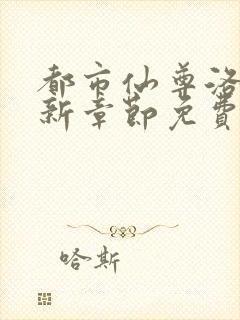 都市仙尊洛
新章節免費
哈斯